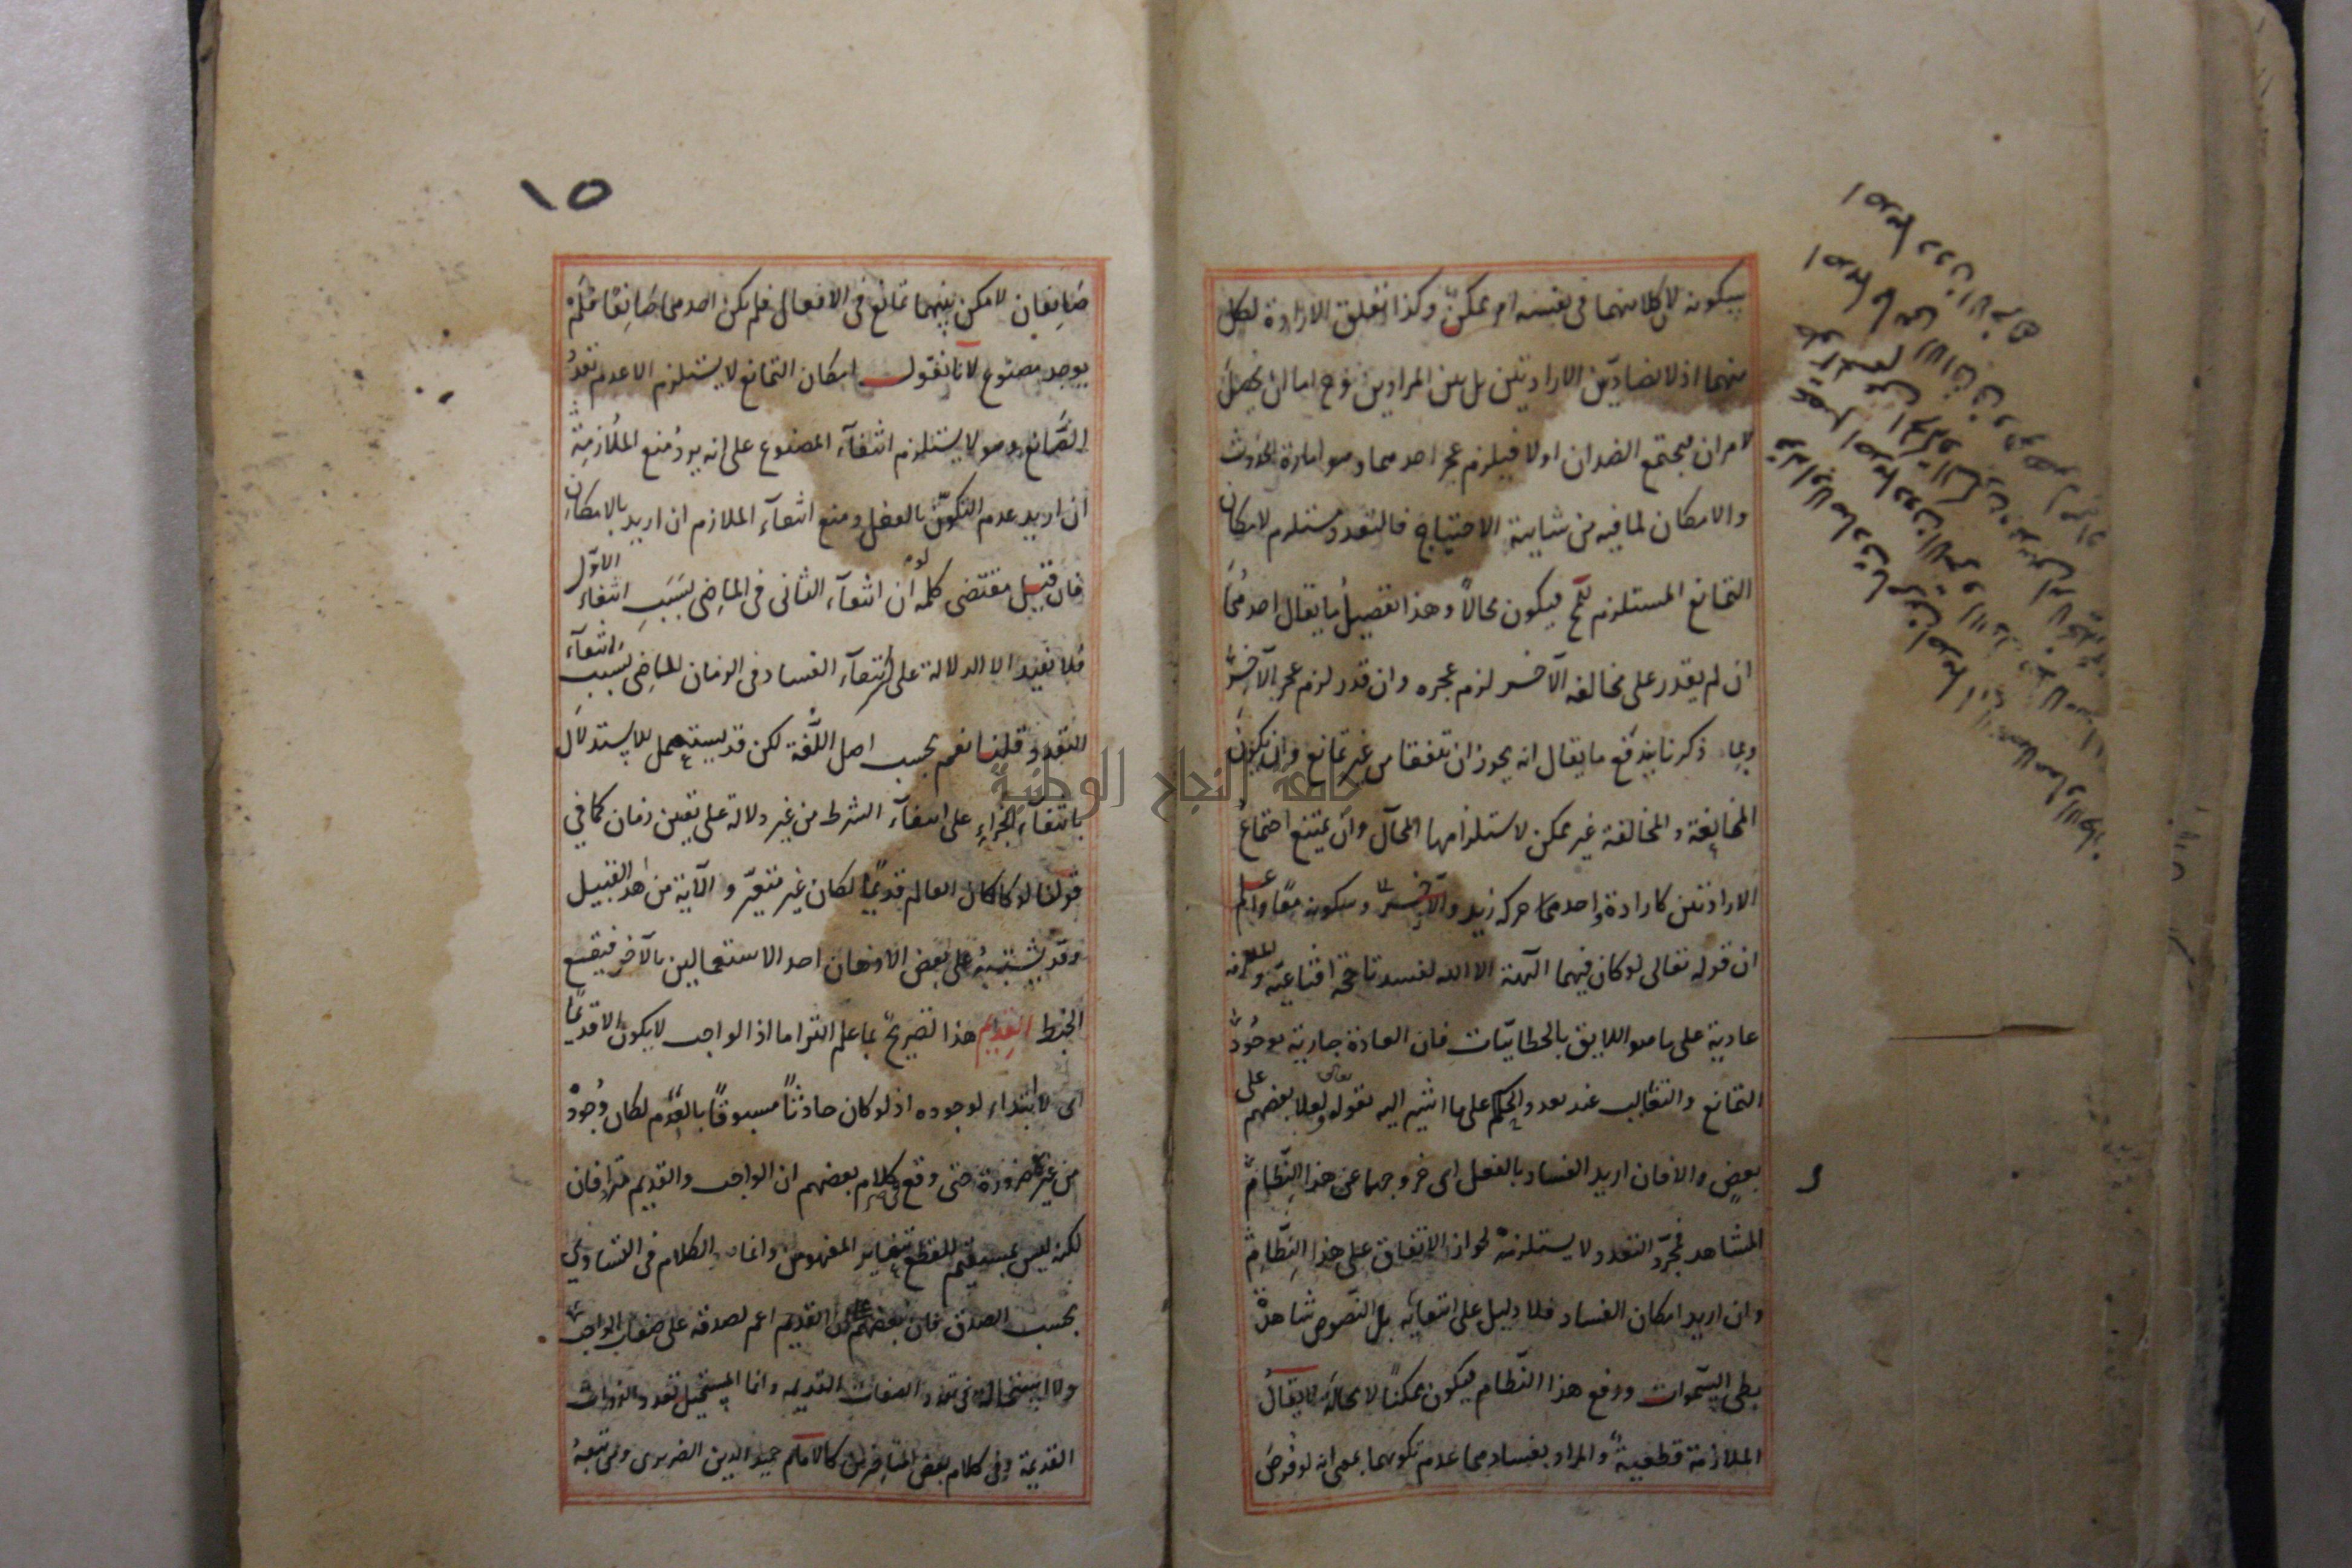 بسكونه لان كلا منهما فى نفسه امر ممكن وكذا تعلق الارادة لكل
منهما اذ لا تضاد بين الارادتين بل بين المرادين فح اما ان يحصل
الامران فيجتمع الضدان اولا فيلزم عجز احدهما وهو امارة الحدوث
والامكان لما فيه من شايبة الاحتياج فالتعدد مستلزم لامكان
التمانع المستلزم للمح فيكون محالاً وهذا تفصيل ما يقال احدهما
ان لم يقدر على مخالفة الآخر لزم عجزه وان قدر لزم عجز الآخر
وبما ذكرنا يندفع ما يقال انه يجوز ان يتفقا من غير تمانع وان يكون
الممانعة والمخالفة غير ممكن لاستلزامها المحال وان يمتنع اجتماع
الارادتين كارادة واحد منهما حركة زيد والآخر سكونه معًا واعلم
ان قوله تعالى لو كان فيهما آلهة الا الله لفسدتا حجة اقناعية والملازمة
عادية على ما هو اللايق بالخطابيات فان العادة جارية بوجود
التمانع والتغالب عند تعدد الحاكم على ما اشير اليه بقوله تعالى ولعلا بعضهم على
بعض والا فان اريد الفساد بالفعل اى خروجهما عن هذا النظام
المشاهد فمجرد التعدد لا يستلزمه لجواز الاتفاق على هذا النظام
وان اريد امكان الفساد فلا دليل على انتفايه بل النصوص شاهدة
بطى السموات ورفع هذا النظام فيكون ممكنًا لا محالة لا يقال
الملازمة قطعية والمراد بفسادهما عدم تكونهما بمعنى انه لو فرض
١٥
صانعان لامكن بينهما تمانع فى الافعال فلم يكن احدهما صانعًا فلم
يوجد مصنوع لانا نقول امكان التمانع لا يستلزم الا عدم تعدد
الصانع وهو لا يستلزم انتفاء المصنوع على انه يرد منع الملازمة
ان اريد عدم التكون بالفعل ومنع انتفاء اللازم ان اريد بالامكان
فان قيل مقتضى كلمة لو ان انتفاء الثانى فى الماضى بسبب انتفاء الاول
فلا تفيد الا الدلالة على انتفاء الفساد فى الزمان الماضى بسبب انتفاء
التعدد قلنا نعم بحسب اصل اللغة لكن قد يستعمل للاستدلال
بانتفاء الجزاء على انتفاء الشرط من غير دلالة على تعين زمان كما فى
قولنا لو كان العالم قديمًا لكان غير متغير والآية من هذا القبيل
وقد يشتبه على بعض الاذهان احد الاستعمالين بالآخر فيقع
الخبط القديم هذا تصريح بما علم التزاما اذ الواجب لا يكون الا قديمًا
اى لا ابتداء لوجوده اذ لو كان حادثًا مسبوقًا بالعدم لكان وجوده
من غيره ضرورة حتى وقع فى كلام بعضهم ان الواجب والقديم مترادفان
لكنه ليس بمستقيم للقطع بتغاير المفهومين وانما الكلام فى التساوى
بحسب الصدق فان بعضهم على ان القديم اعم لصدقه على صفات الواجب
ولا استحالة فى تعدد الصفات القديمة وانما المستحيل تعدد الذوات
القديمة وفى كلام بعض المتاخرين كالامام حميد الدين الضريرى ومن تبعه
جامعة النجاح الوطنية